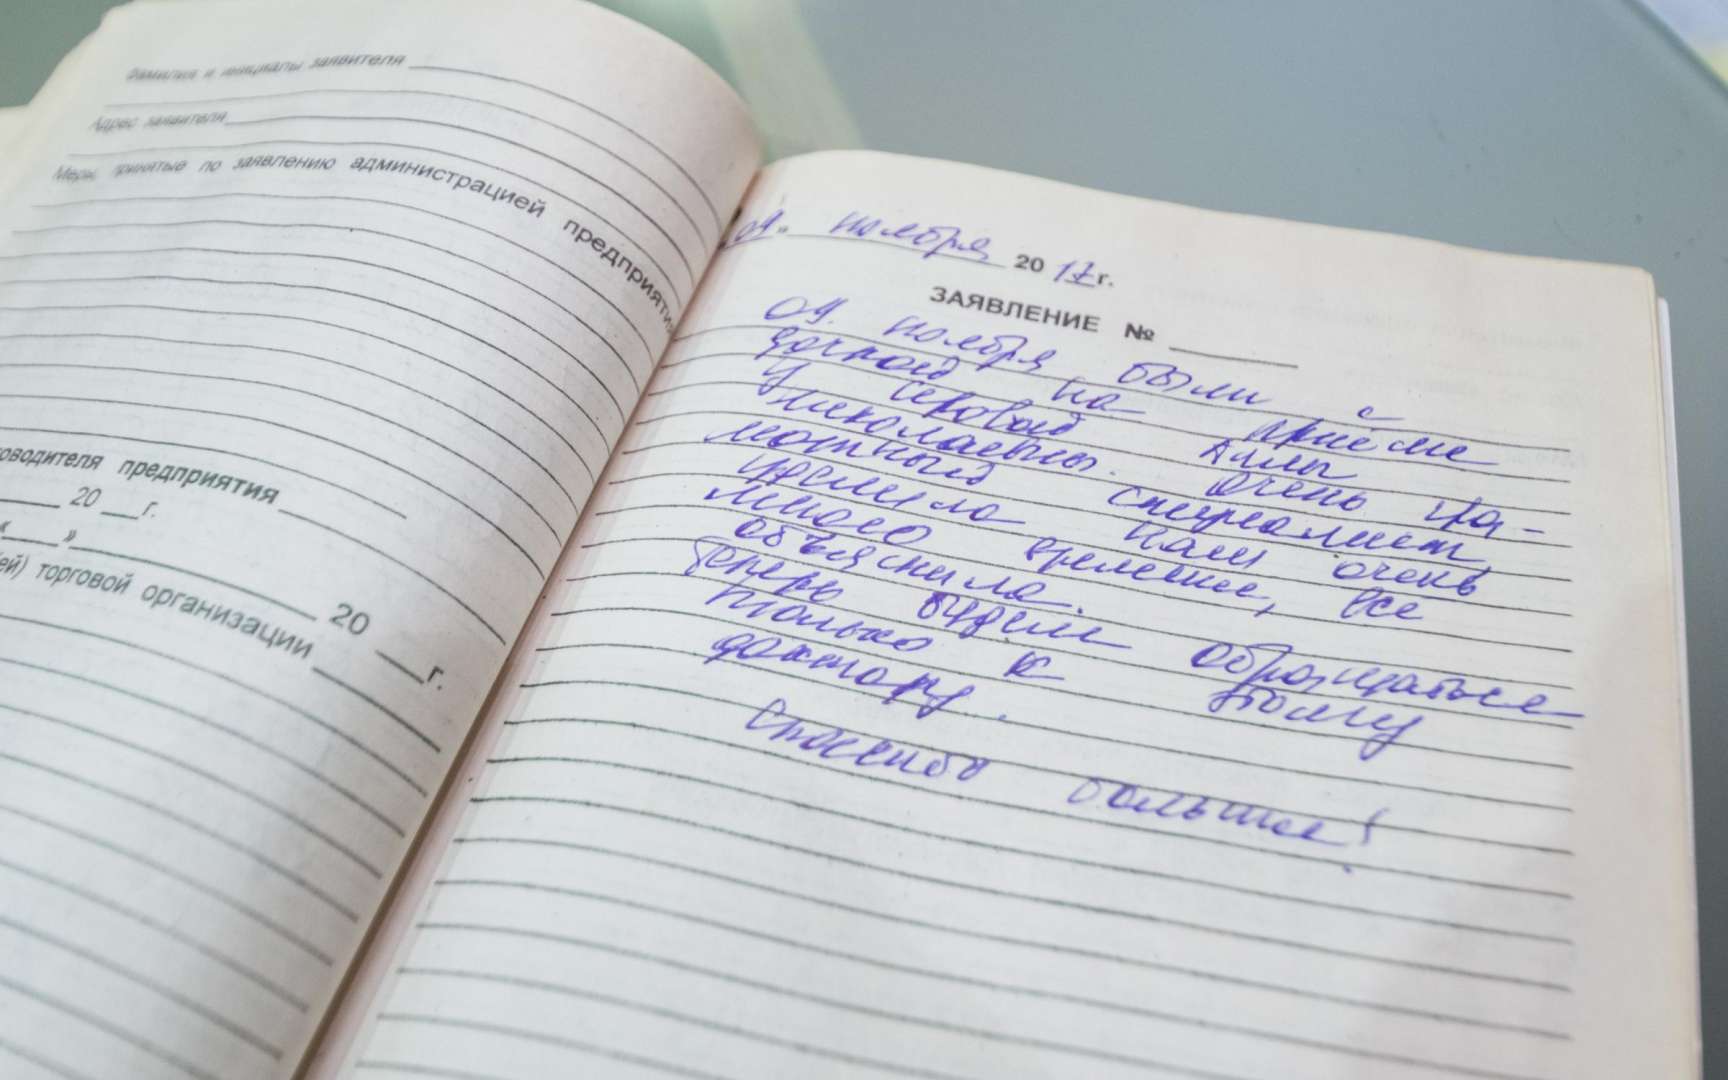 Фамилия и инициалы заявителя
Адрес заявителя
Меры, принятые по заявлению администрацией предприяти
оводителя предприятия
20 г.
« »
20 г.
ей) торговой организации
ноября 20 17 г.
ЗАЯВЛЕНИЕ №
ноября были с
дочкой на приёме
у Аллы
Николаевны. Очень гра-
мотный специалист,
уделила нам очень
много времени, все
объяснила.
Теперь будем обращаться
только к этому
доктору.
Спасибо большое!